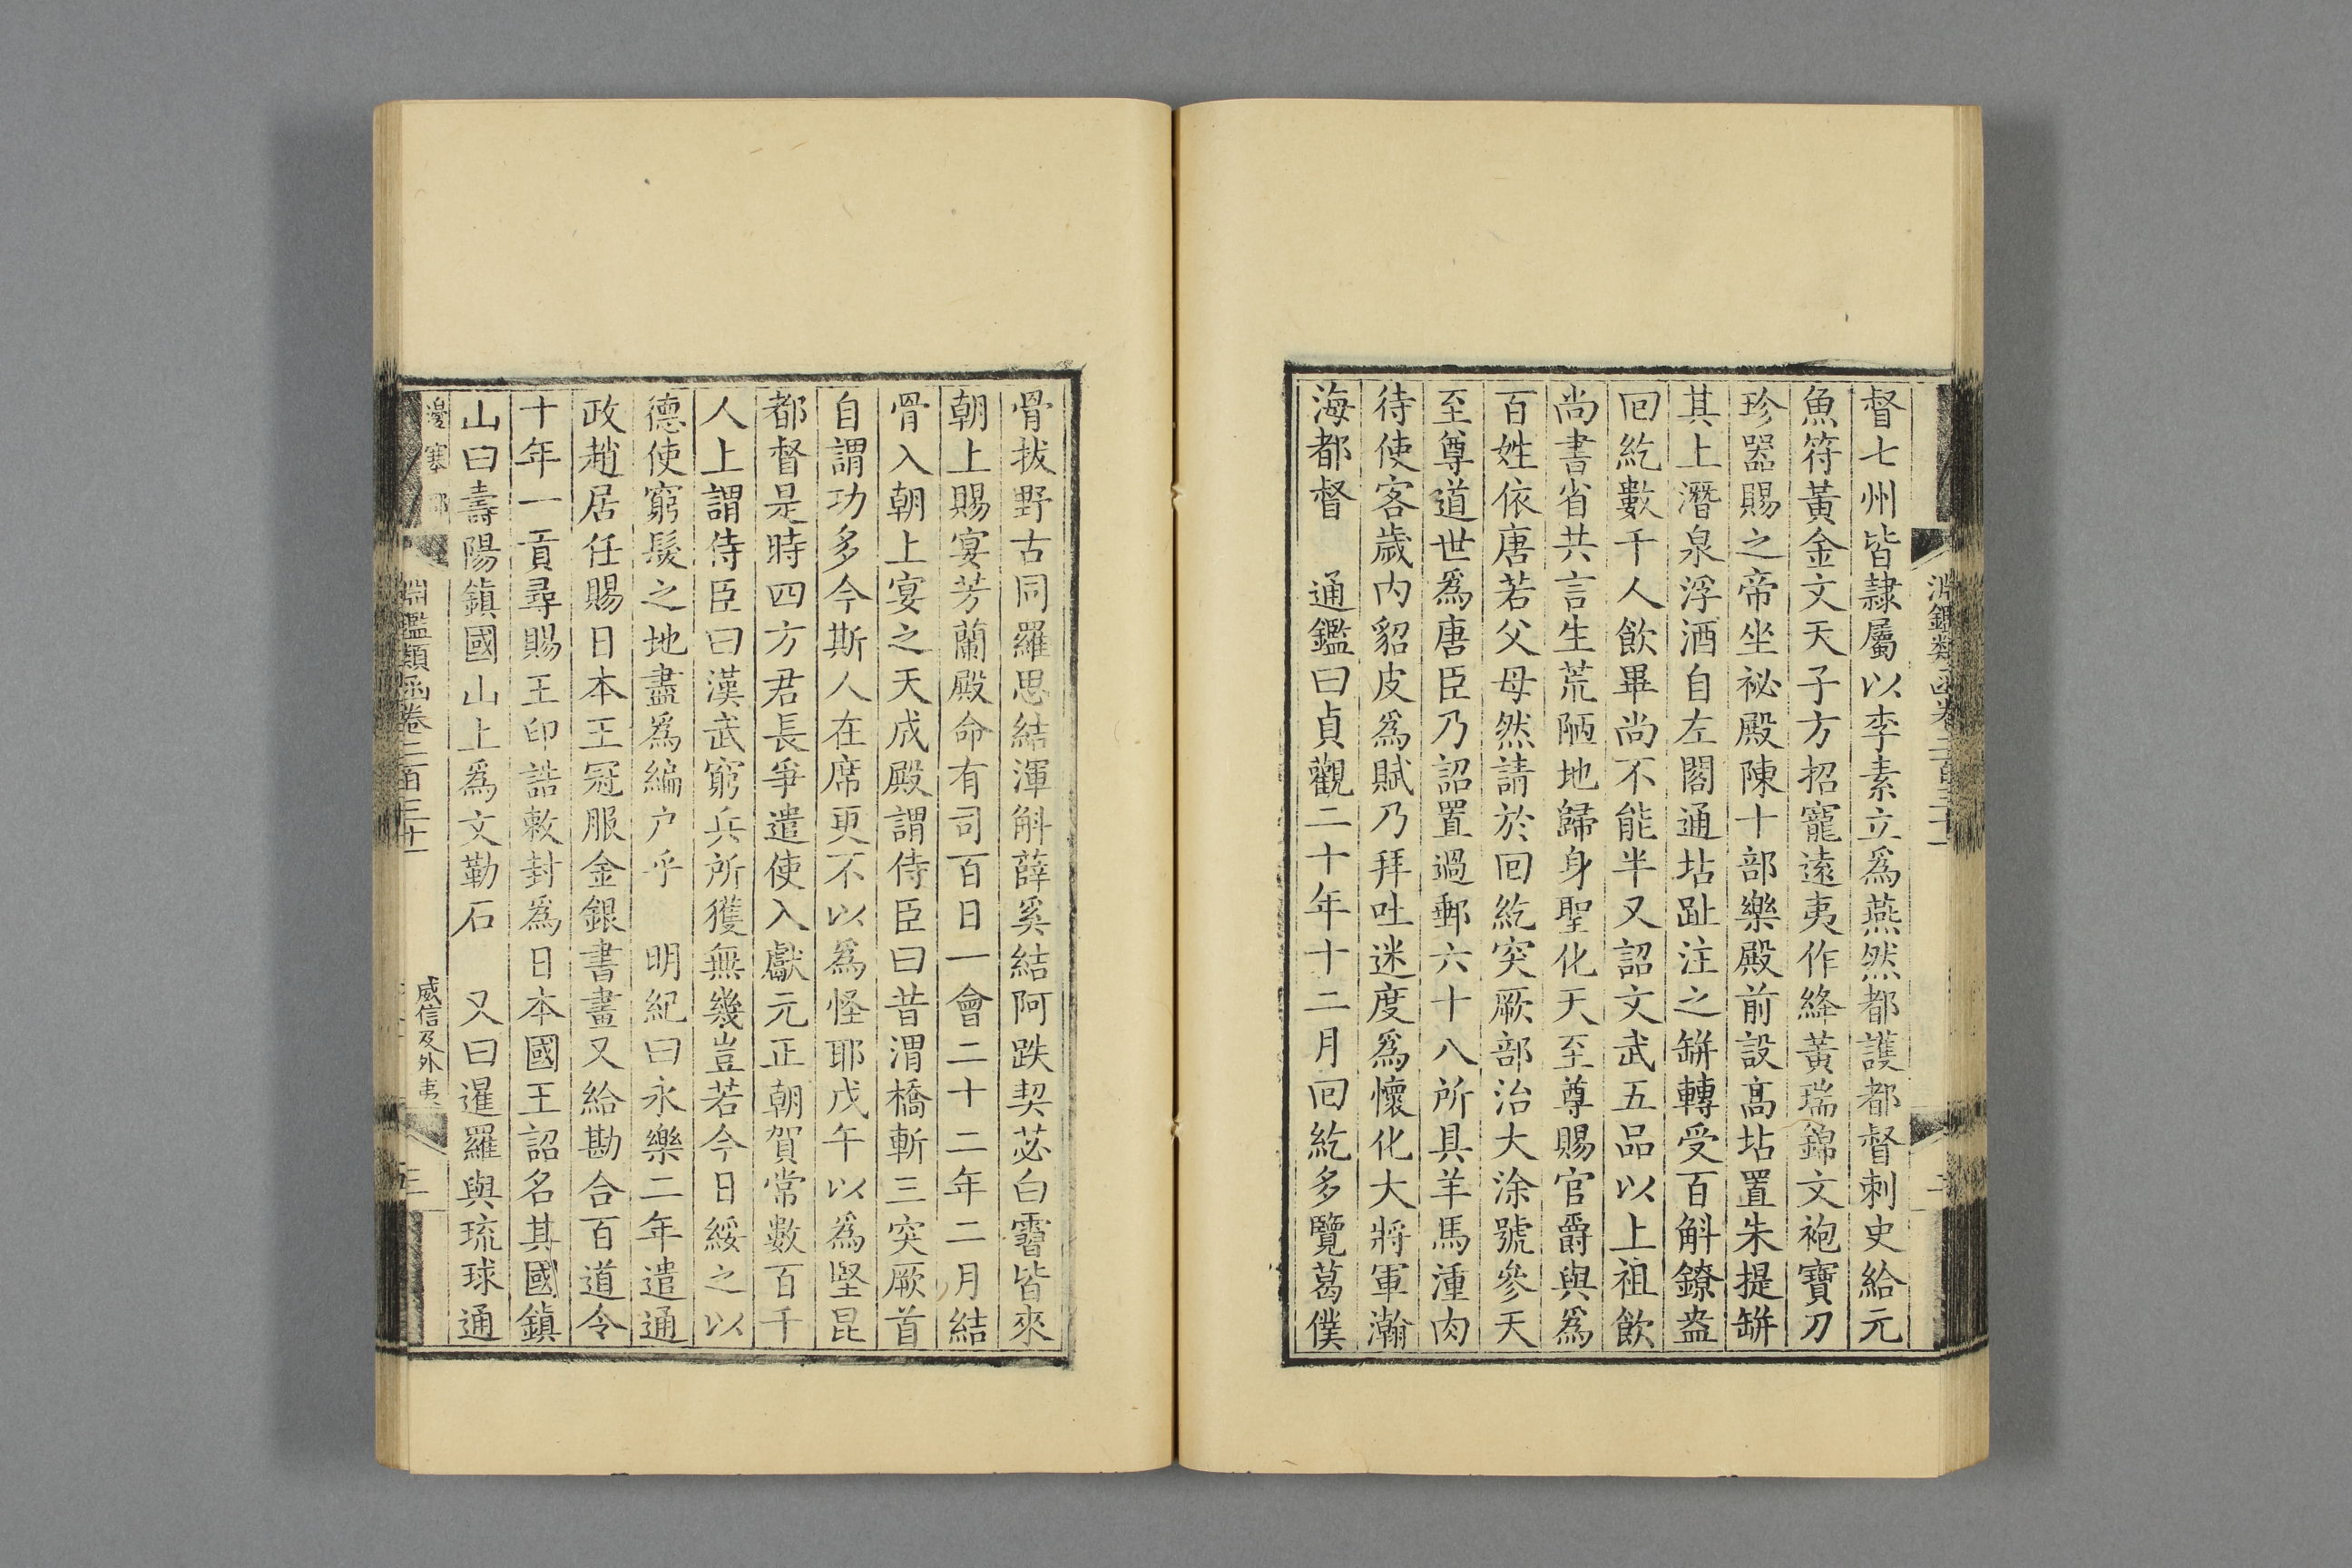 督七州皆隷屬以李素立爲燕然都護都督刺史給元
魚符黃金文天子方招寵遠夷作絳黃瑞錦文袍寶刀
珍器賜之帝坐祕殿陳十部樂殿前設高坫置朱提缾
其上潛泉浮酒自左閣通坫趾注之缾轉受百斛鐐盎
回紇數千人飮畢尚不能半又詔文武五品以上祖飮
尚書省共言生荒陋地歸身聖化天至尊賜官爵與爲
百姓依唐若父母然請於回紇突厥部治大涂號參天
至尊道世爲唐臣乃詔置過郵六十八所具羊馬湩肉
待使客歲内貂皮爲賦乃拜吐迷度爲懷化大將軍瀚
海都督　通鑑曰貞觀二十年十二月回紇多覽葛僕
骨拔野古同羅思結渾斛薛奚結阿跌契苾白霫皆來
朝上賜宴芳蘭殿命有司百日一會二十二年二月結
骨入朝上宴之天成殿謂侍臣曰昔渭橋斬三突厥首
自謂功多今斯人在席更不以爲怪耶戊午以爲堅昆
都督是時四方君長爭遣使入獻元正朝賀常數百千
人上謂侍臣曰漢武窮兵所獲無幾豈若今日綏之以
德使窮髮之地盡爲編户乎　明紀曰永樂二年遣通
政趙居任賜日本王冠服金銀書畫又給勘合百道令
十年一貢尋賜王印誥敕封爲日本國王詔名其國鎮
山曰壽陽鎮國山上爲文勒石　又曰暹羅與琉球通
邊塞部
淵鑑類函卷二百三十
威信及外夷
三